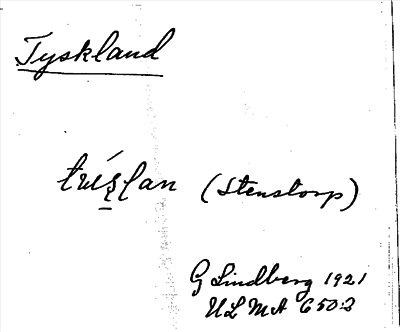 Tyskland
(Stenstorp)
G Lindberg 1921
ULMA 650:2